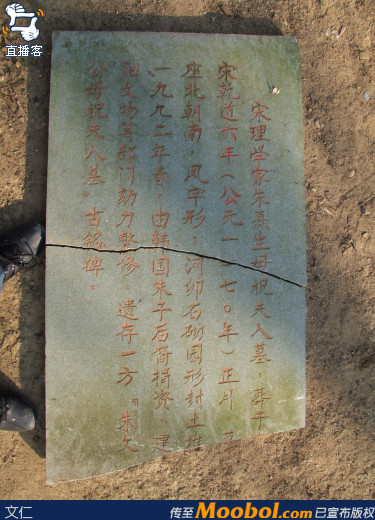 直播客
宋理学家朱熹生母祝夫人墓，葬于
宋乾道六年（公元一一七〇年）正月
座北朝南，凤字形，河卵石砌园形封土堆
一九九二年春 由韩国朱子后裔捐资，建
阳文物等部门助力整修。遗存一方“朱文
公母祝夫人墓”古铭碑。
文仁
传至 Moobol.com 已宣布版权